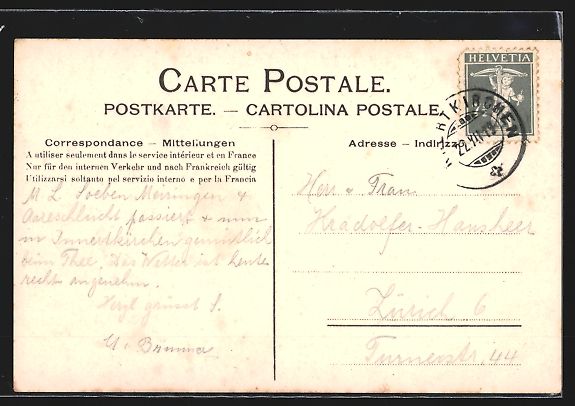 CARTE POSTALE.
POSTKARTE. — CARTOLINA POSTALE.
HELVETIA
Correspondance – Mitteilungen
A utiliser seulement dans le service intérieur et en France
Nur für den internen Verkehr und nach Frankreich gültig
Utilizzarsi soltanto pel servizio interno e per la Francia
Adresse – Indirizzo
M. L. Soeben Meiringen &
Aareschlucht passiert & nun
in Innertkirchen gemütlich
beim Thee. Das Wetter ist heute
recht angenehm.
Herzl. grüsst
Herr & Frau
Zürich 6
Turnerstr. 44